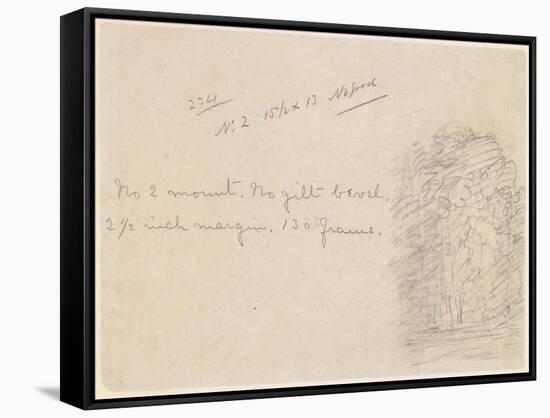 234
No. 2 15 1/2 x 13 No good
No 2 mount. No gilt bevel.
2 1/2 inch margin. 130 frame.